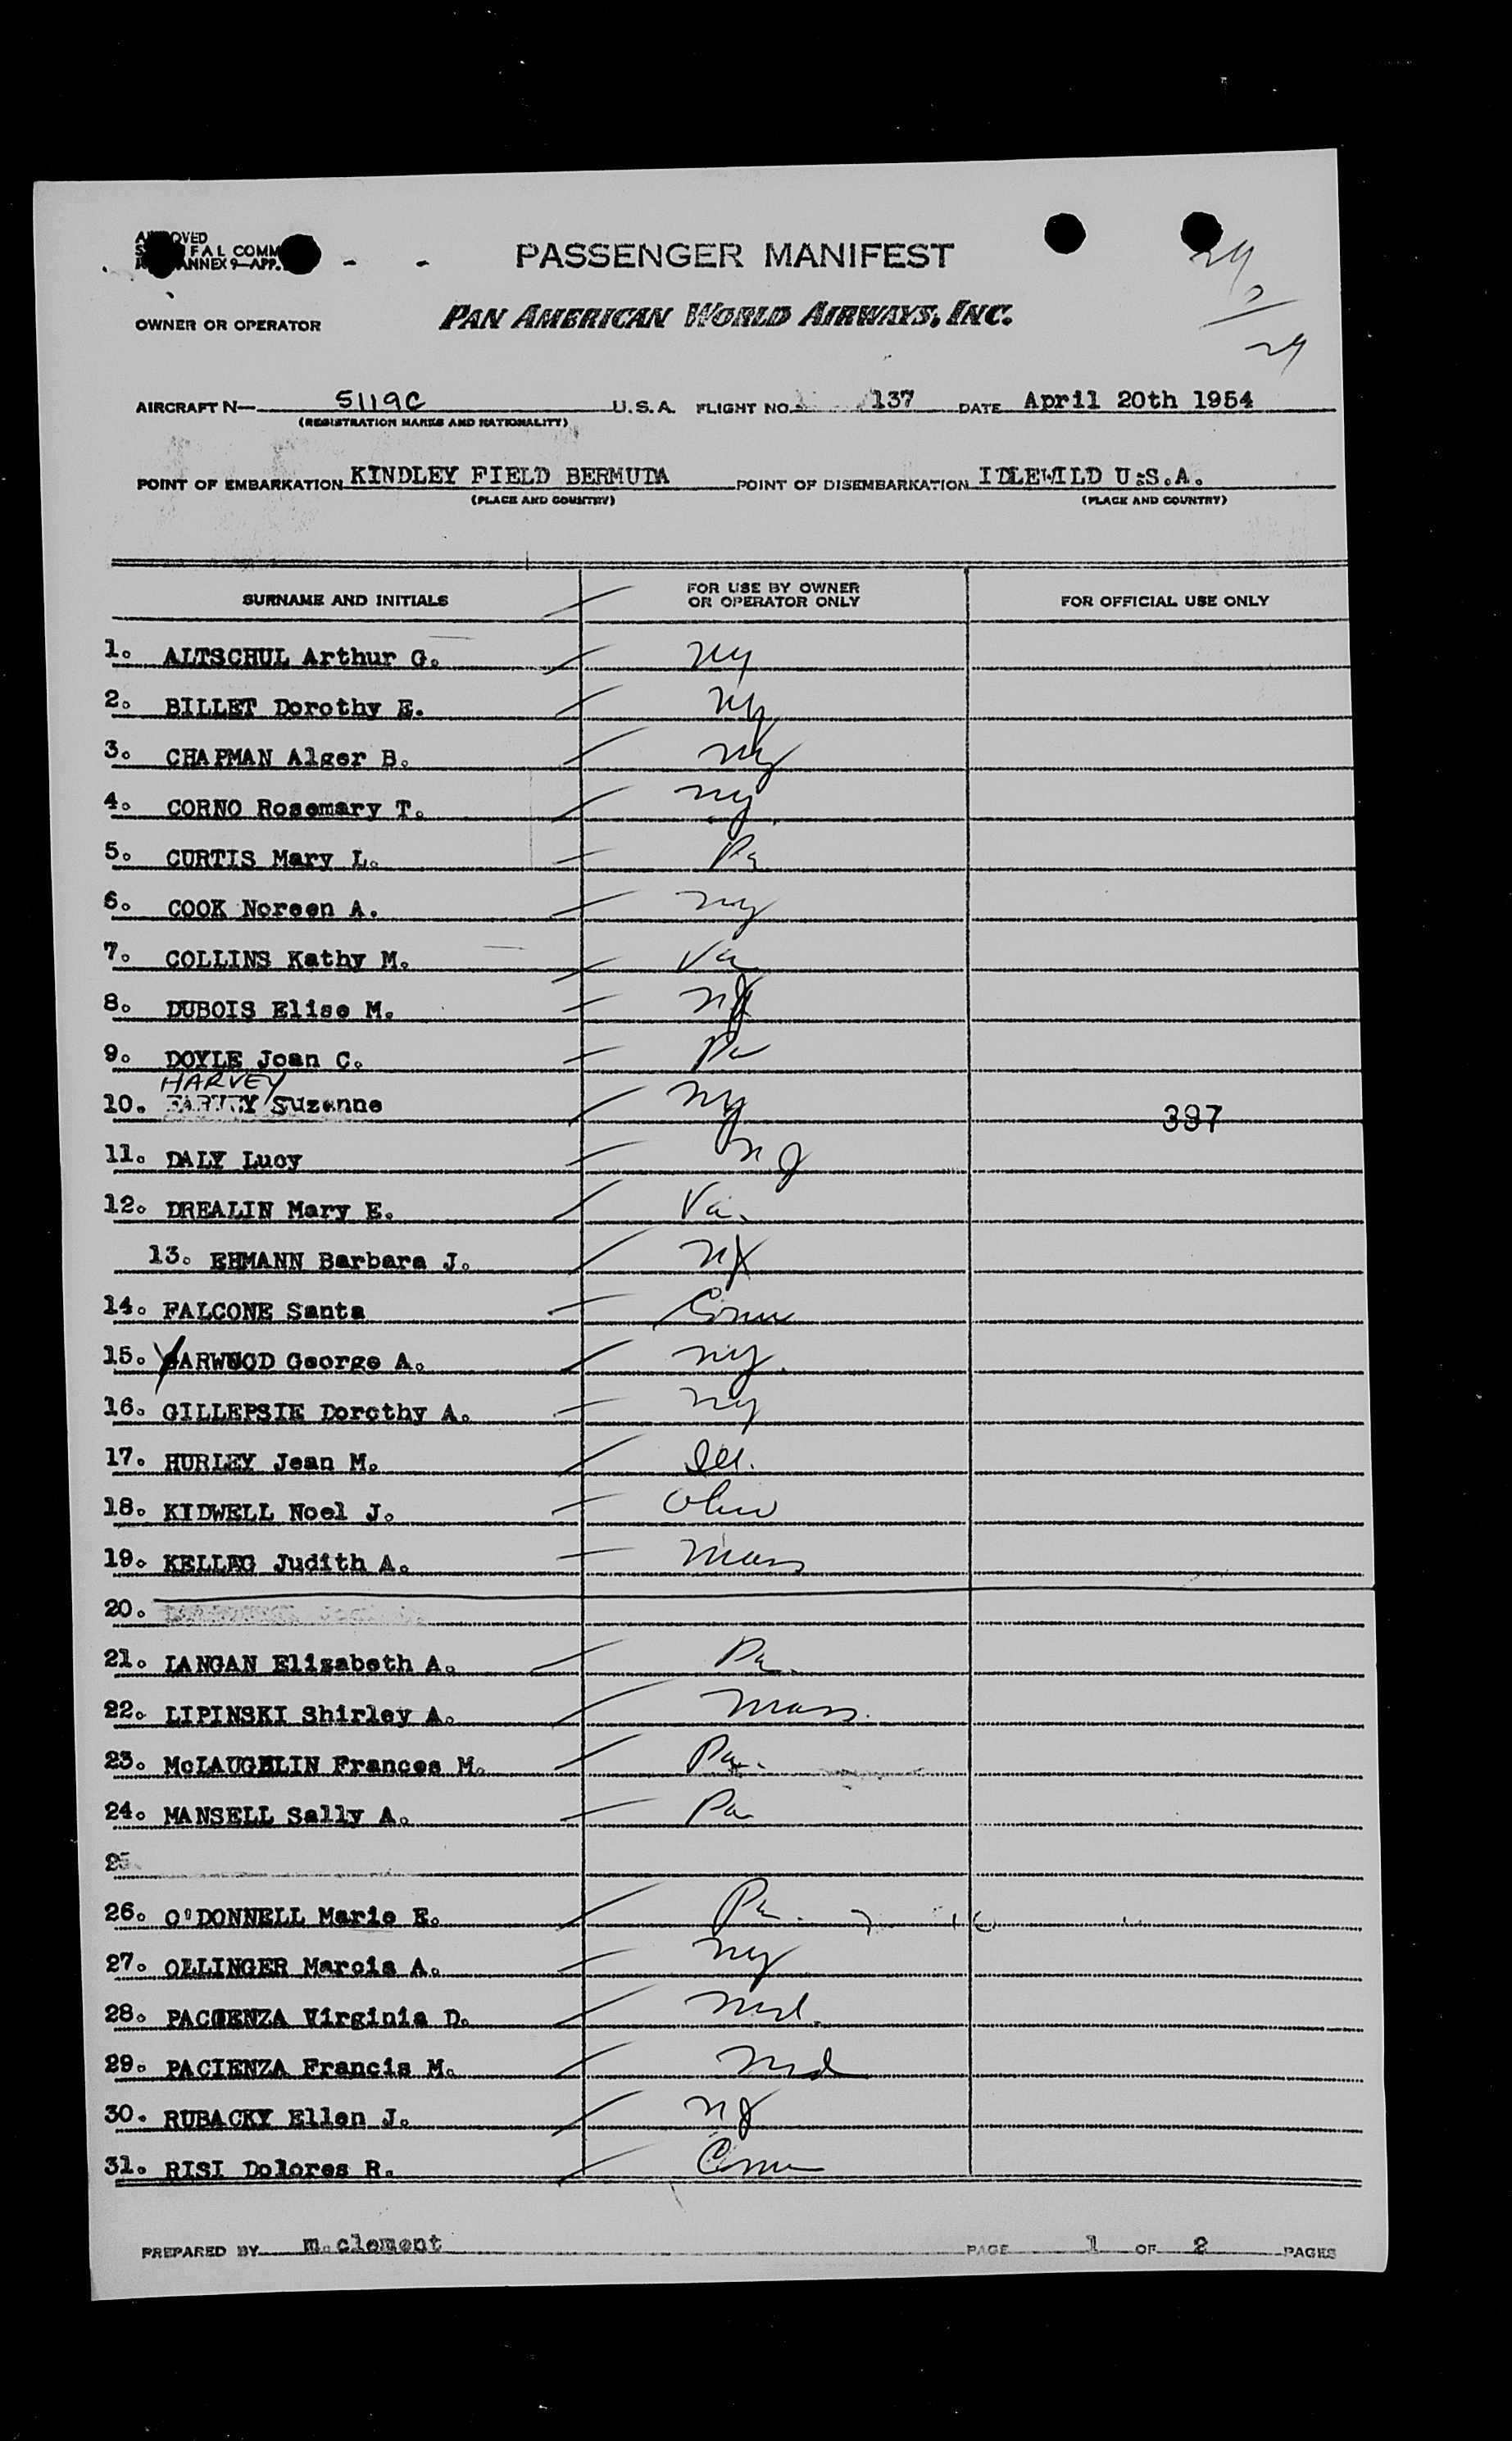 PASSENGER MANIFEST
FAL COMM
ANNEX 9—APP.
OWNER OR OPERATOR PAN AMERICAN WORLD AIRWAYS, INC.
24
0
24
AIRCRAFT N— 5119C U.S.A. FLIGHT NO. 137 DATE April 20th 1954
(REGISTRATION MARKS AND NATIONALITY)
POINT OF EMBARKATION KINDLEY FIELD BERMUDA POINT OF DISEMBARKATION IDLEWILD U:S.A.
(PLACE AND COUNTRY) (PLACE AND COUNTRY)
SURNAME AND INITIALS FOR USE BY OWNER OR OPERATOR ONLY FOR OFFICIAL USE ONLY
1. ALTSCHUL Arthur G. Ny
2. BILLET Dorothy E. Ny
3. CHAPMAN Alger B. Ny
4. CORNO Rosemary T. Ny
5. CURTIS Mary L. Pa
6. COOK Noreen A. Ny
7. COLLINS Kathy M. Va
8. DUBOIS Elise M.
9. DOYLE Joan C. Pa
HARVEY
10. Suzanne Ny 397
11. DALY Lucy NJ
12. DREALIN Mary E. Va.
13. EHMANN Barbara J. NY
14. FALCONE Santa Conn
15. YARWOOD George A. Ny.
16. GILLEPSIE Dorothy A. Ny
17. HURLEY Jean M. Ill.
18. KIDWELL Noel J. Ohio
19. KELLEG Judith A. Mass
20.
21. LANGAN Elisabeth A. Pa.
22. LIPINSKI Shirley A. Mass.
23. McLAUGHLIN Frances M. Pa.
24. MANSELL Sally A. Pa
25
26. O'DONNELL Marie E. Pa.
27. OLLINGER Marcia A. Ny
28. PACIENZA Virginia D. Md.
29. PACIENZA Francis M. Md
30. RUBACKY Ellen J. NJ
31. RISI Dolores R. Conn
PREPARED BY m.clement PAGE 1 OF 2 PAGES